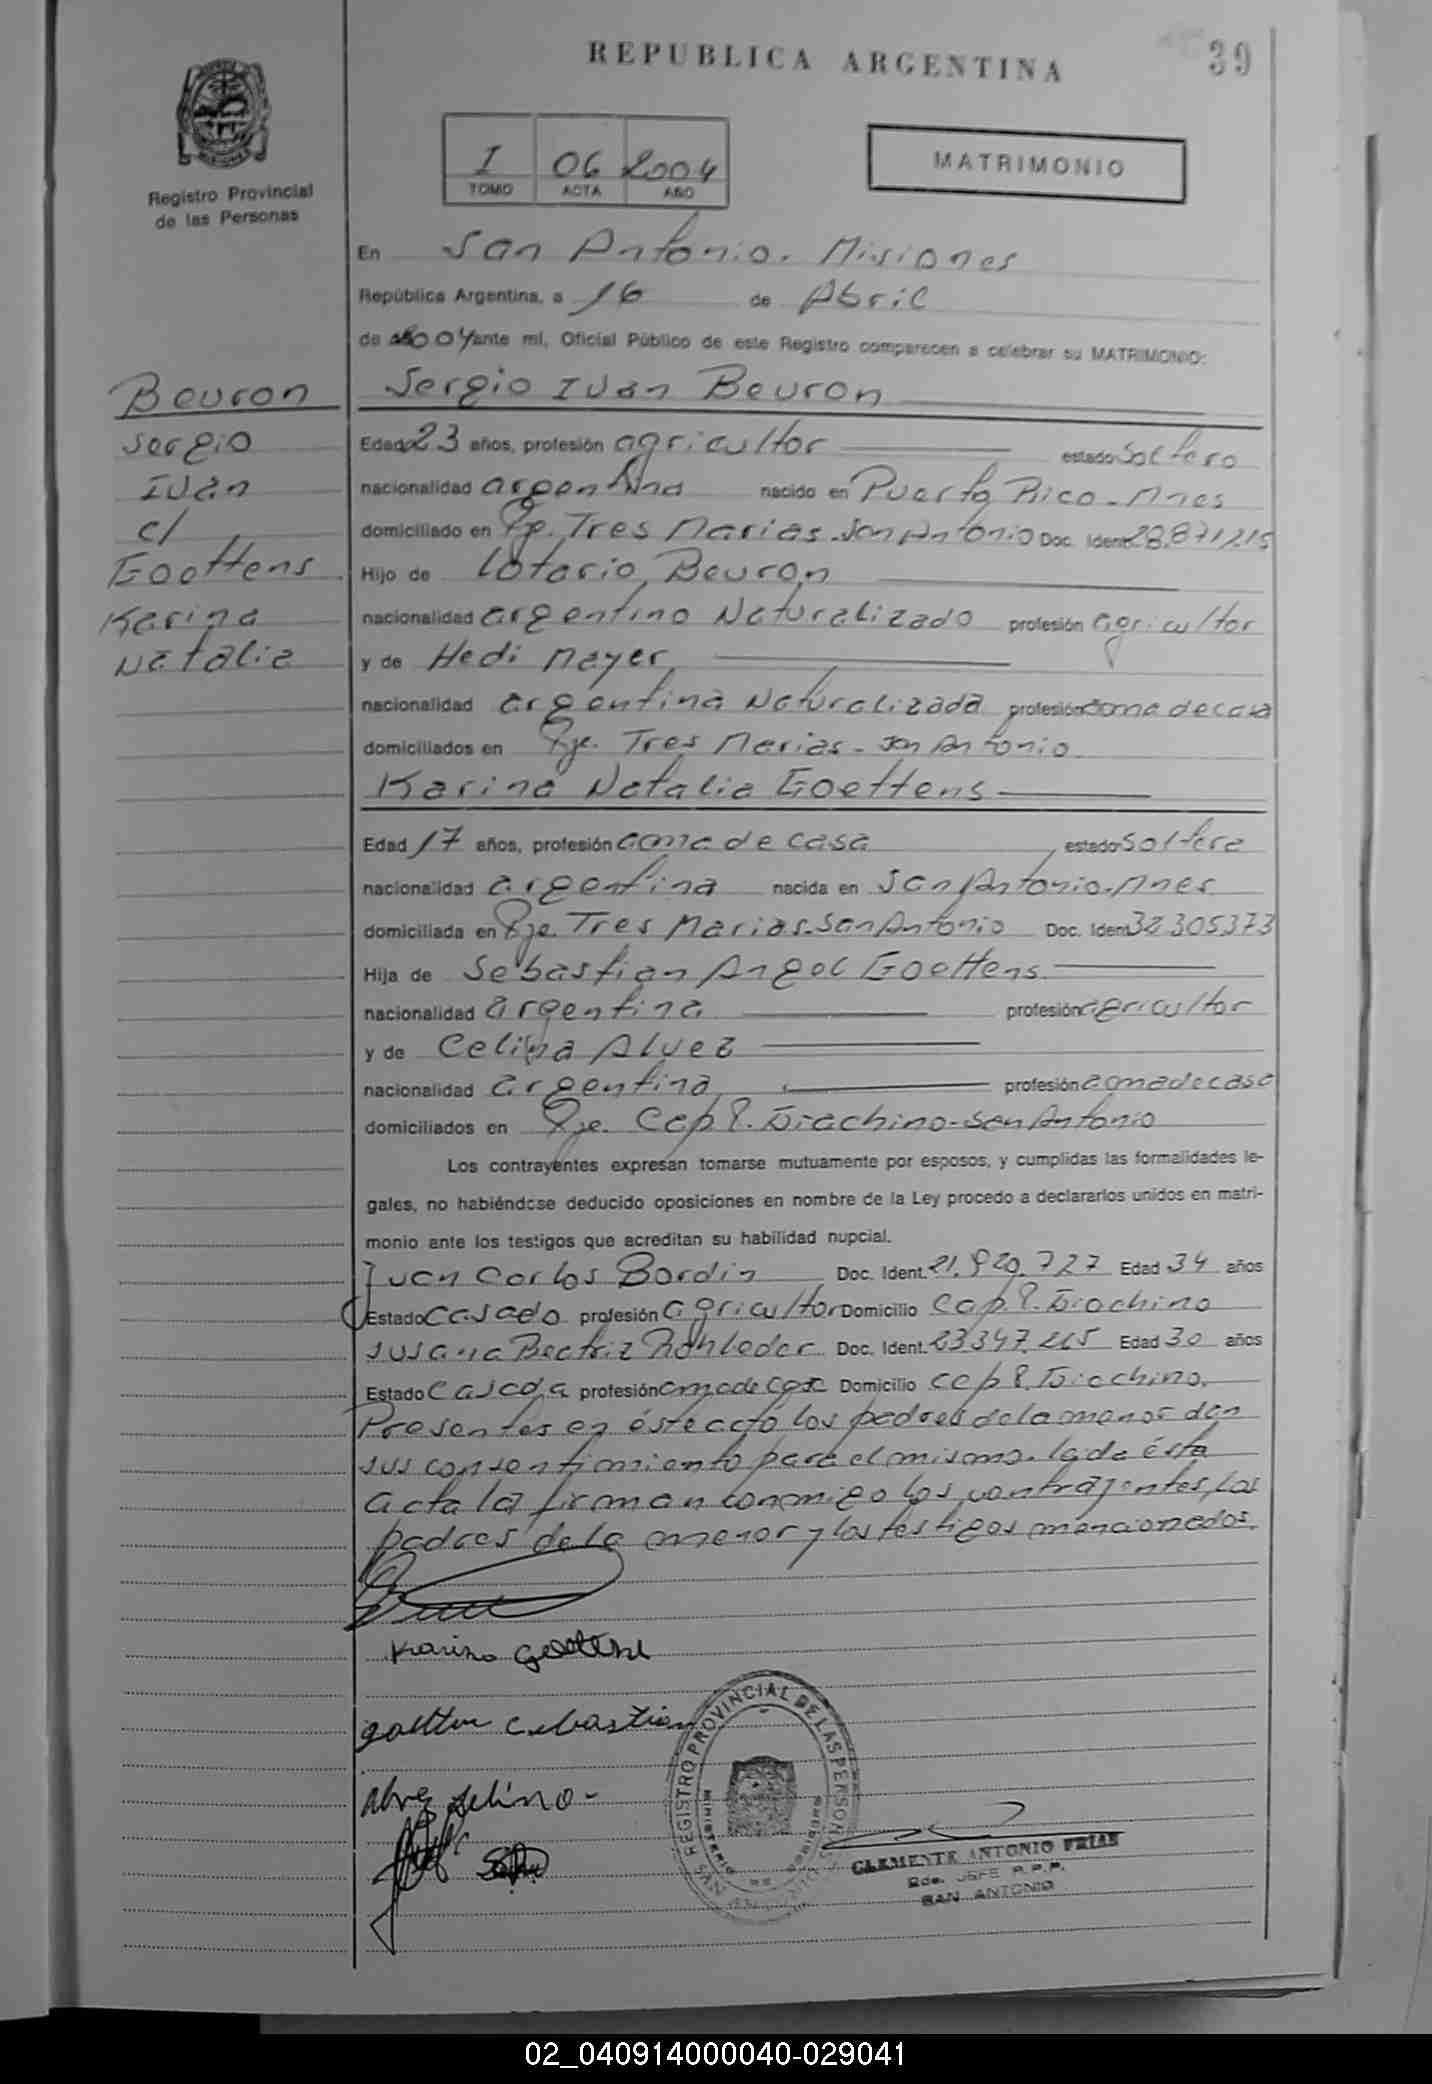 REPUBLICA ARGENTINA
39
Registro Provincial
de las Personas
I 06 2004
TOMO ACTA AÑO
MATRIMONIO
En San Antonio. Misiones
República Argentina, a 16 de Abril
de 2004 ante mí, Oficial Público de este Registro comparecen a celebrar su MATRIMONIO:
Beuron
Sergio
Iván
c/
Goettens
Karina
Natalia
Sergio Iván Beuron
Edad 23 años, profesión agricultor estado soltero
nacionalidad argentina nacido en Puerto Rico-Mnes
domiciliado en Pje. Tres Marias-San Antonio Doc. Ident. 28.871.215
Hijo de Lotario Beuron
nacionalidad argentino Naturalizado profesión agricultor
y de Hedi Mayer
nacionalidad argentina Naturalizada profesión ama de casa
domiciliados en Pje. Tres Marias-San Antonio
Karina Natalia Goettens
Edad 17 años, profesión ama de casa estado soltera
nacionalidad argentina nacida en San Antonio-Mnes
domiciliada en Pje. Tres Marias-San Antonio Doc. Ident. 32.305.373
Hija de Sebastian Angel Goettens
nacionalidad argentina profesión agricultor
y de Celina Alvez
nacionalidad argentina profesión ama de casa
domiciliados en Pje. Cap. P. Giachino-San Antonio
Los contrayentes expresan tomarse mutuamente por esposos, y cumplidas las formalidades le-
gales, no habiéndose deducido oposiciones en nombre de la Ley procedo a declararlos unidos en matri-
monio ante los testigos que acreditan su habilidad nupcial.
Juan Carlos Bordin Doc. Ident. 21.920.727 Edad 34 años
Estado casado profesión agricultor Domicilio Cap. P. Giachino
Susana Beatriz Rohleder Doc. Ident. 23347.265 Edad 30 años
Estado casada profesión ama de casa Domicilio Cap P. Giachino.
Presentes en éste acto los padres de la menor dan
sus consentimiento para el mismo. Leída ésta
acta la firman conmigo los contrayentes, los
padres de la menor y los testigos mencionados.
Karina Goettens
goetten Cebastian
Alvez Selina-
REGISTRO PROVINCIAL DE LAS PERSONAS
MINISTERIO DE GOBIERNO
CLEMENTE ANTONIO FRIAS
Gde. JEFE R.P.P.
SAN ANTONIO
02_040914000040-029041